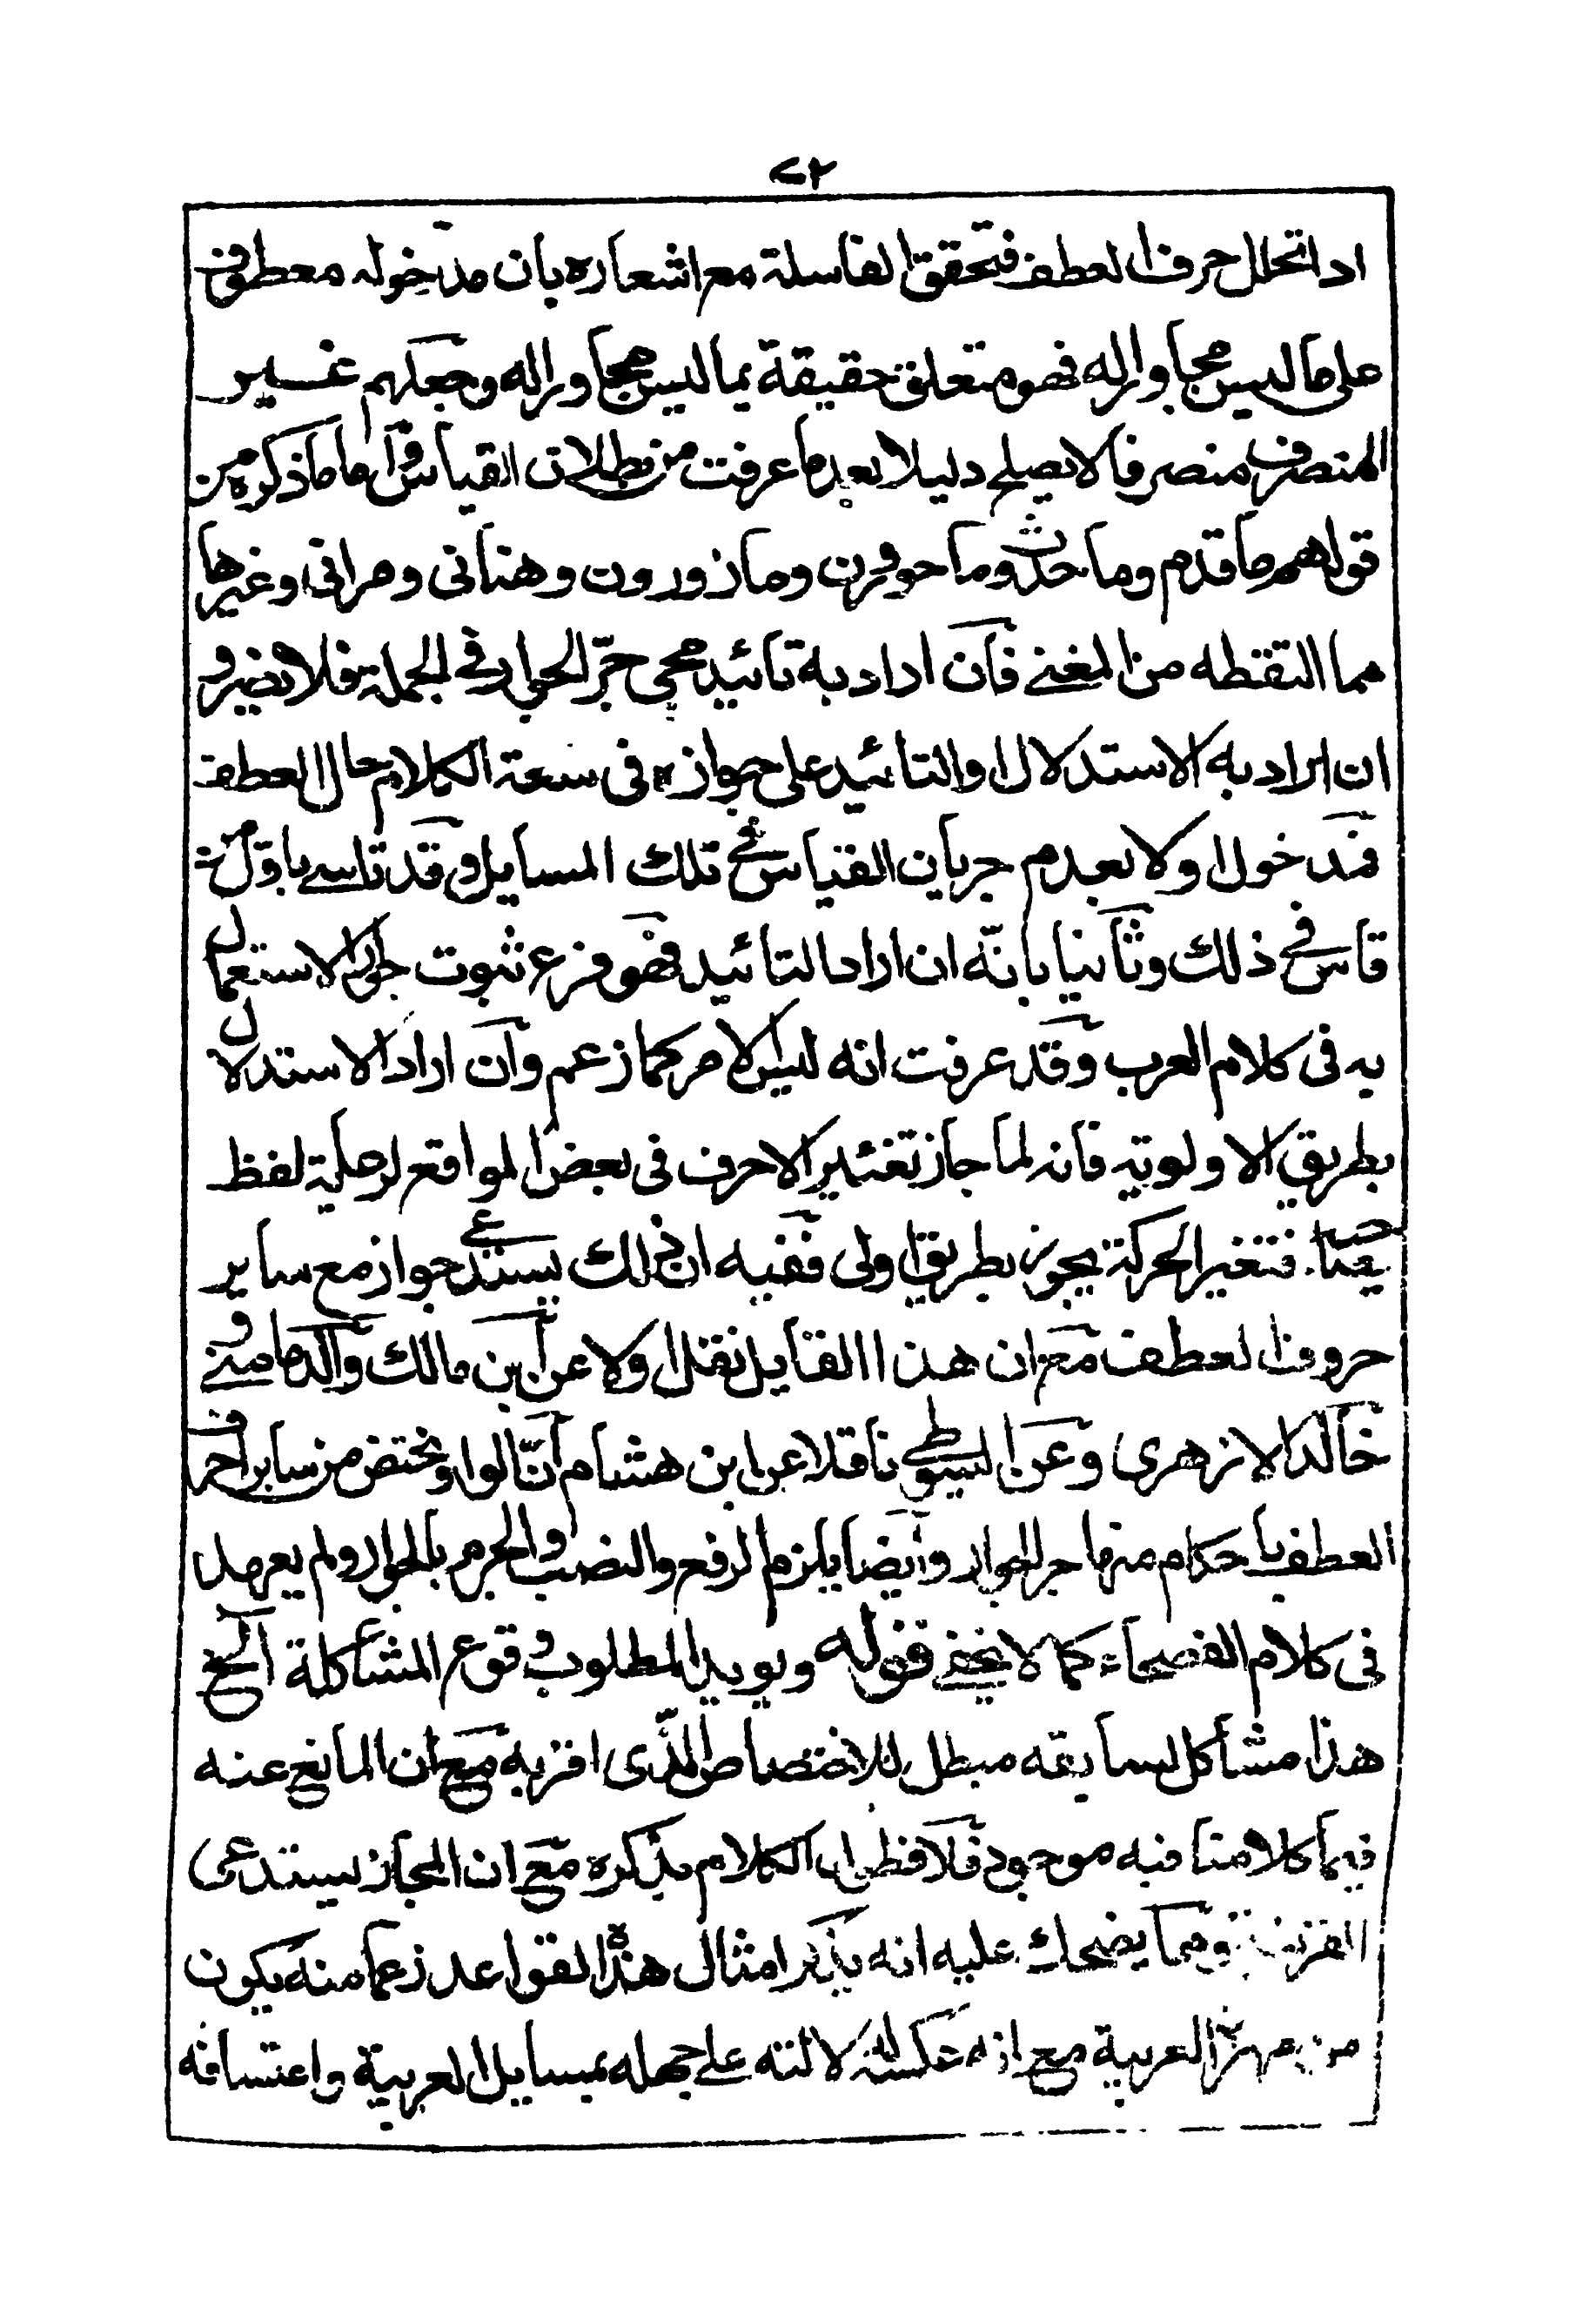 ٧٢
اذا تخلل حرف العطف فتحقق الفاصلة مع اشعاره بان مدخوله معطوف
على ما ليس مجاورا له فهو متعلق حقيقة بما ليس مجاورا له وجعلهم غير
المنصرف منصرفا لا يصلح دليلا بعد ما عرفت من بطلان القياس وآما ما ذكره من
قولهم ما قدم وما حدث وما حوفرن وما زورون وهنانى ومرانى وغيرها
مما التقطه من المغنى فآن اراد به تائيد مجى جرّ الجوار فى الجملة فلا يضر و
ان اراد به الاستدلال او التائيد على جوازه فى سعة الكلام حال العطف
فمدخول اولا بعدم جريان القياس فى تلك المسايل وقد تاسى باوّل من
قاس فى ذلك وثآنيا بانّه ان اراد التائيد فهو فرع ثبوت جواز الاستعمال
به فى كلام العرب وقد عرفت انه ليس الامر كما زعم وآن اراد الاستدلال
بطريق الاولوية فانه لما جاز تغئير الاحرف فى بعض المواقع لرعاية لفظ
فتغير الحركة يجوز بطريق اولى ففيه ان ذلك يستدعى جوازه مع ساير
حروف العطف مع ان هذا القايل نقل اولا عن ابن مالك والدمامينى و
خالد الازهرى وعن السيوطى ناقلا عن ابن هشام انّ الواو تختص من ساير احرف
العطف باحكام منها جر الجوار وآيضا يلزم الرفع والنصب والجزم بالجوار ولم يعهد
فى كلام الفصحاء كما لا يخفى قوله ويويد المطلوب وقوع المشأكلة آلخ
هذا مشأكل لسابقه مبطل للاختصاص الذّى اقر به مع ان المانع عنه
فيما كلامنا فيه موجود فلا فطراب الكلام بذكره مع ان المجاز يستدعى
القرينة ومما يضحك عليه انه يذكر امثال هذه القواعد زعما منه يكون
من مهرة العربية مع انه عكست دلالته على جهله بمسايل العربية واعتسافه